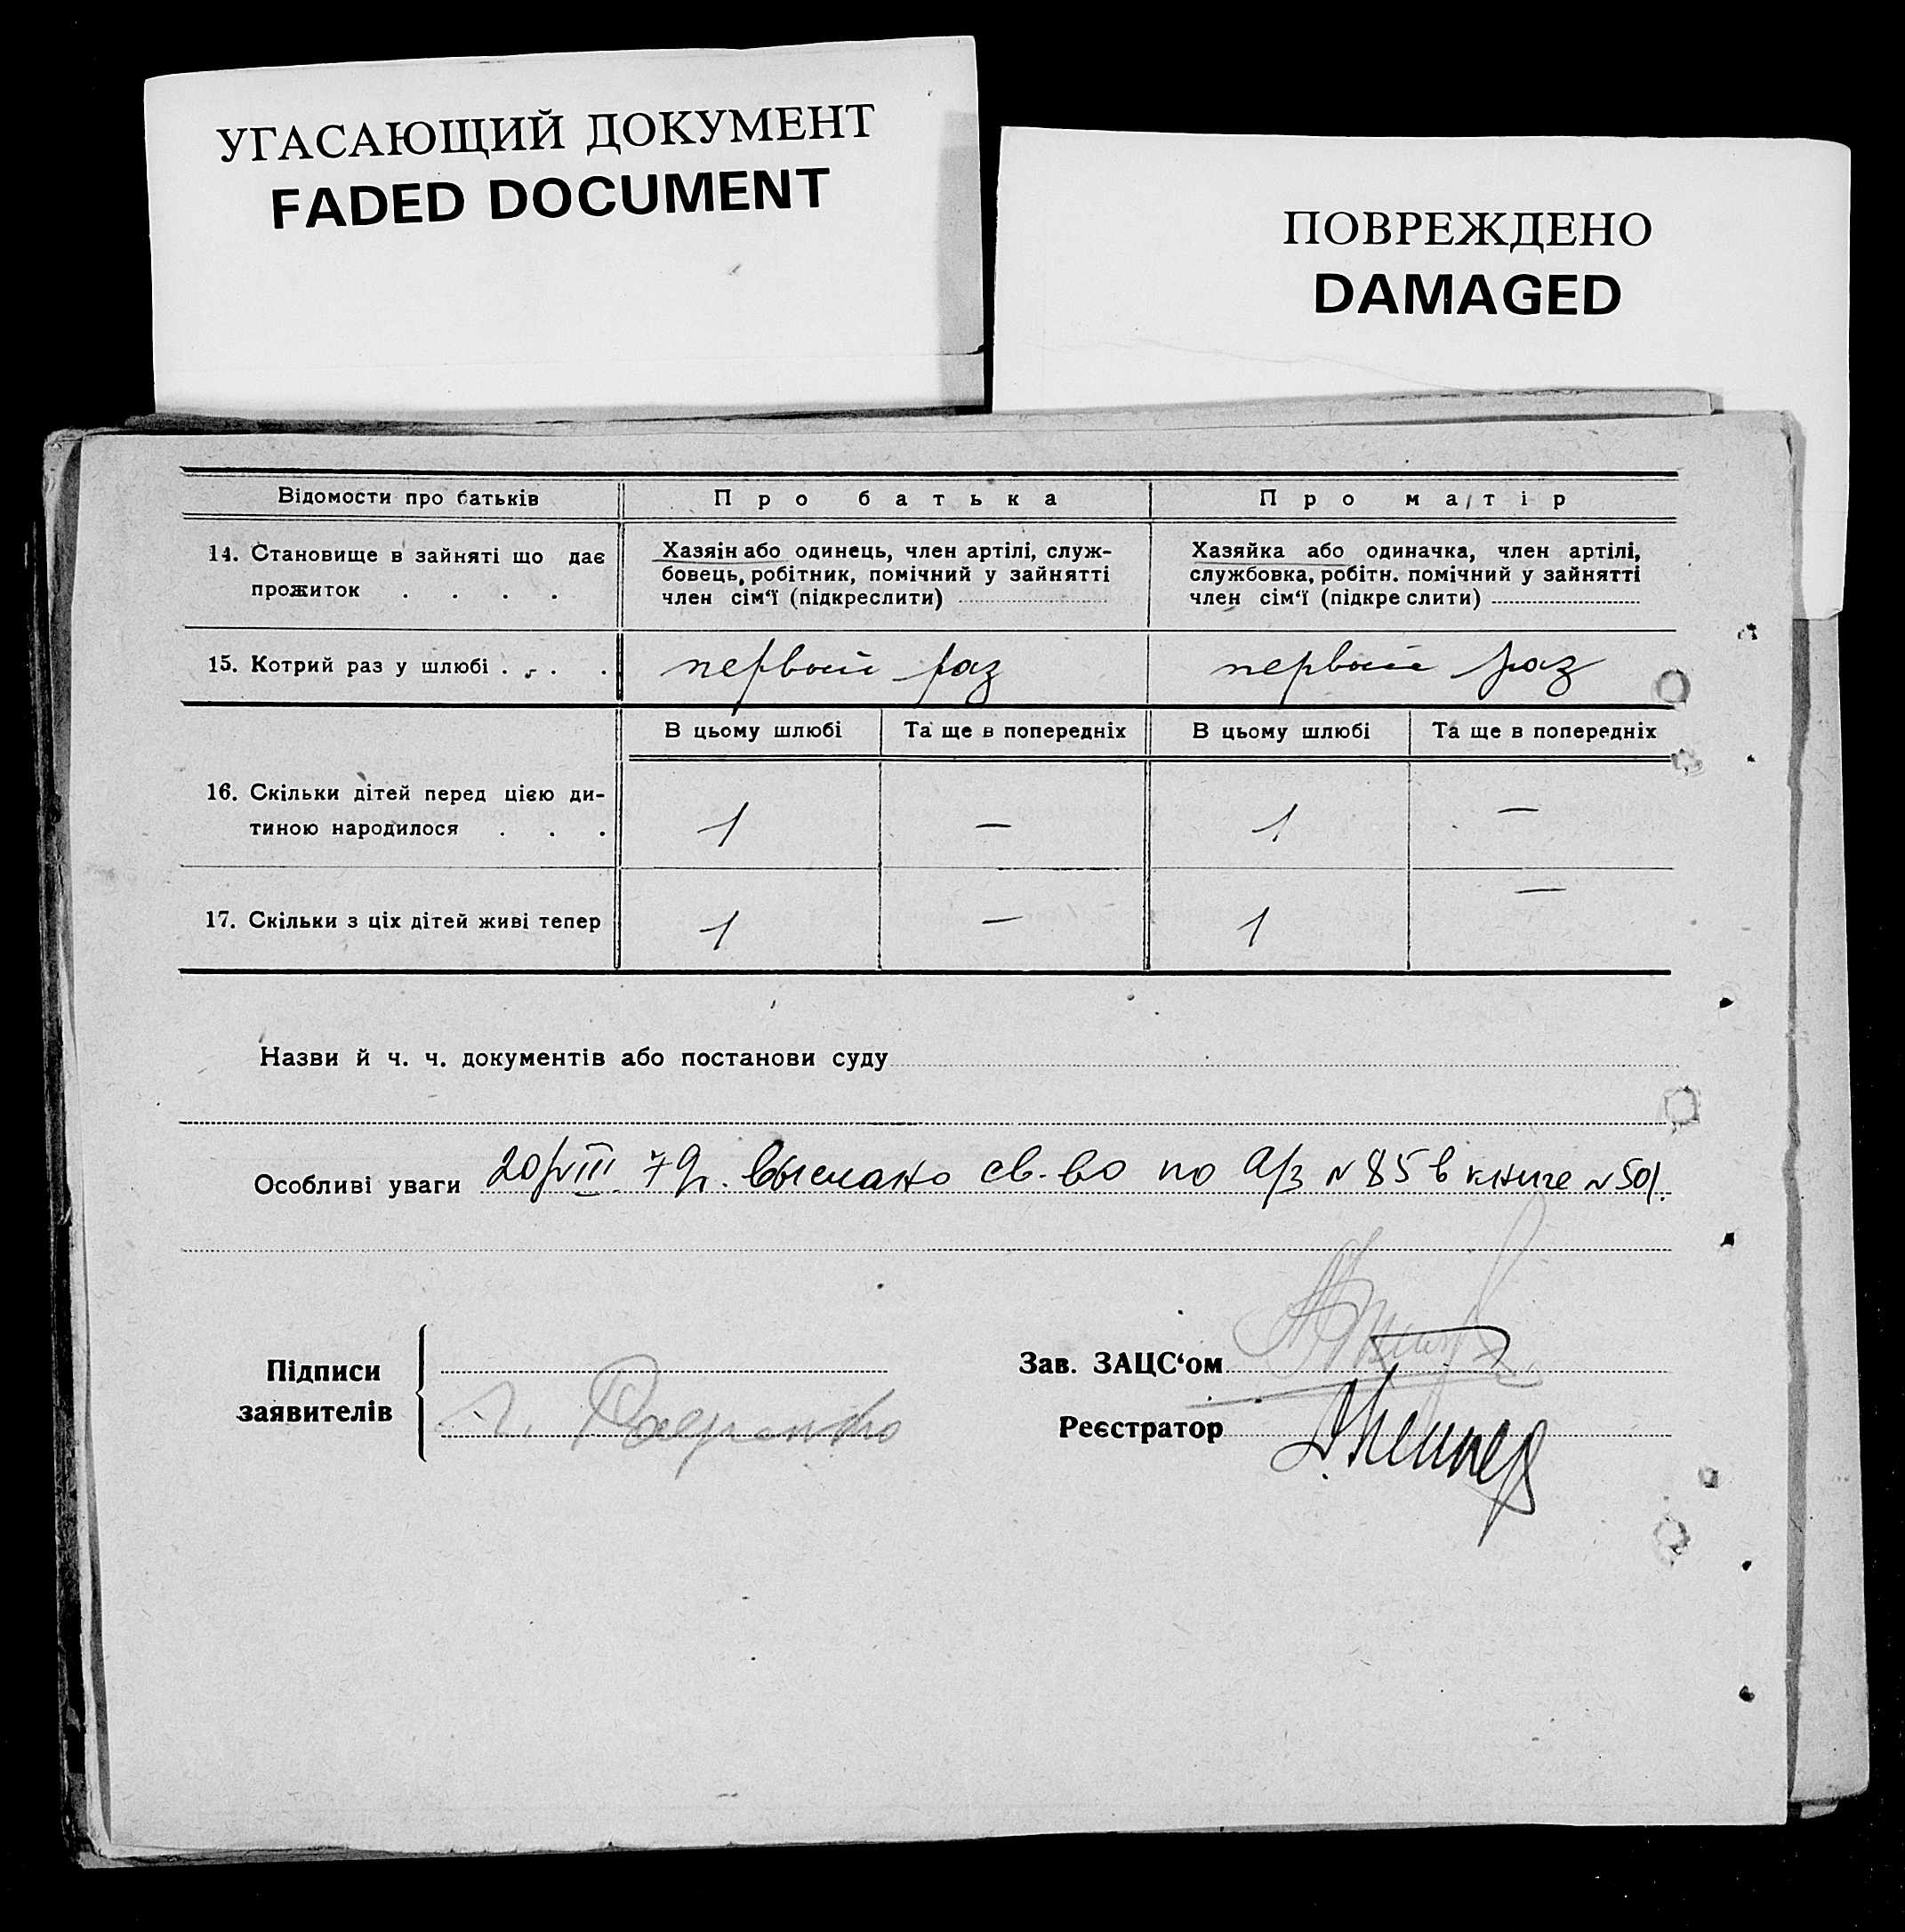 УГАСАЮЩИЙ ДОКУМЕНТ
FADED DOCUMENT
ПОВРЕЖДЕНО
DAMAGED
Відомости про батьків
Про батька
Про матір
14. Становище в зайняті що дає
прожиток . . . .
Хазяїн або одинець, член артілі, служ-
бовець, робітник, помічний у зайнятті
член сім‘ї (підкреслити)
Хазяйка або одиначка, член артілі,
службовка, робітн. помічний у зайнятті
член сім‘ї (підкреслити)
15. Котрий раз у шлюбі . . . .
первый раз
первый раз
В цьому шлюбі
Та ще в попередніх
В цьому шлюбі
Та ще в попередніх
16. Скільки дітей перед цією ди-
тиною народилося . . .
1
—
1
—
17. Скільки з ціх дітей живі тепер
1
—
1
—
Назви й ч. ч. документів або постанови суду
Особливі уваги 20/VIII 79г. выслано св-во по а/з N 85 в книге N 501.
Підписи
заявителів
Зав. ЗАЦС‘ом
Реєстратор